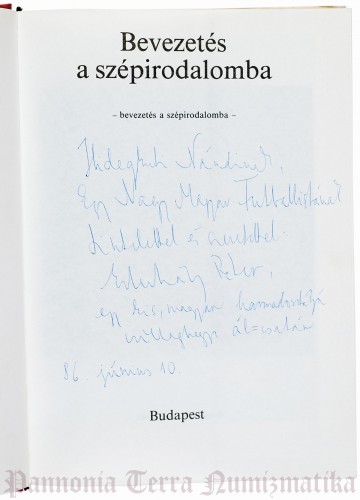 Bevezetés
a szépirodalomba
– bevezetés a szépirodalomba –
Hidegkuti Nándornak,
Egy Nagy Magyar Futballistának
tisztelettel és szeretettel:
Esterházy Péter,
egy kis, magyar
86. június 10.
Budapest
Pannonia Terra Numizmatika